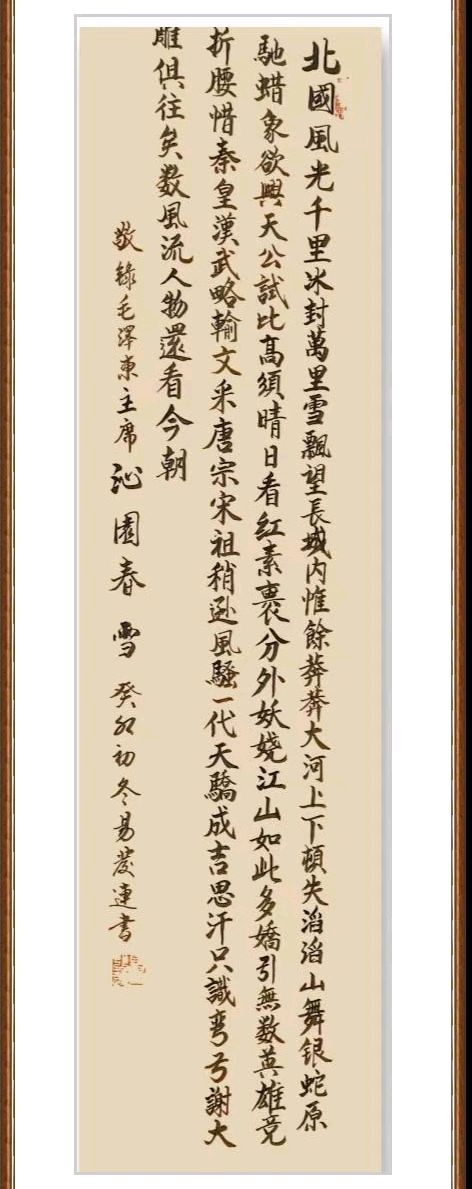 北國風光千里冰封萬里雪飄望長城内惟餘莽莽大河上下頓失滔滔山舞银蛇原
馳蜡象欲與天公試比髙須晴日看红素裹分外妖嬈江山如此多嬌引無数英雄竞
折腰惜秦皇漢武略輸文采唐宗宋祖稍逊風騷一代天驕成吉思汗只識弯弓謝大
雕俱往矣数風流人物還看今朝
敬錄毛澤東主席沁園春雪癸卯初冬易發連書